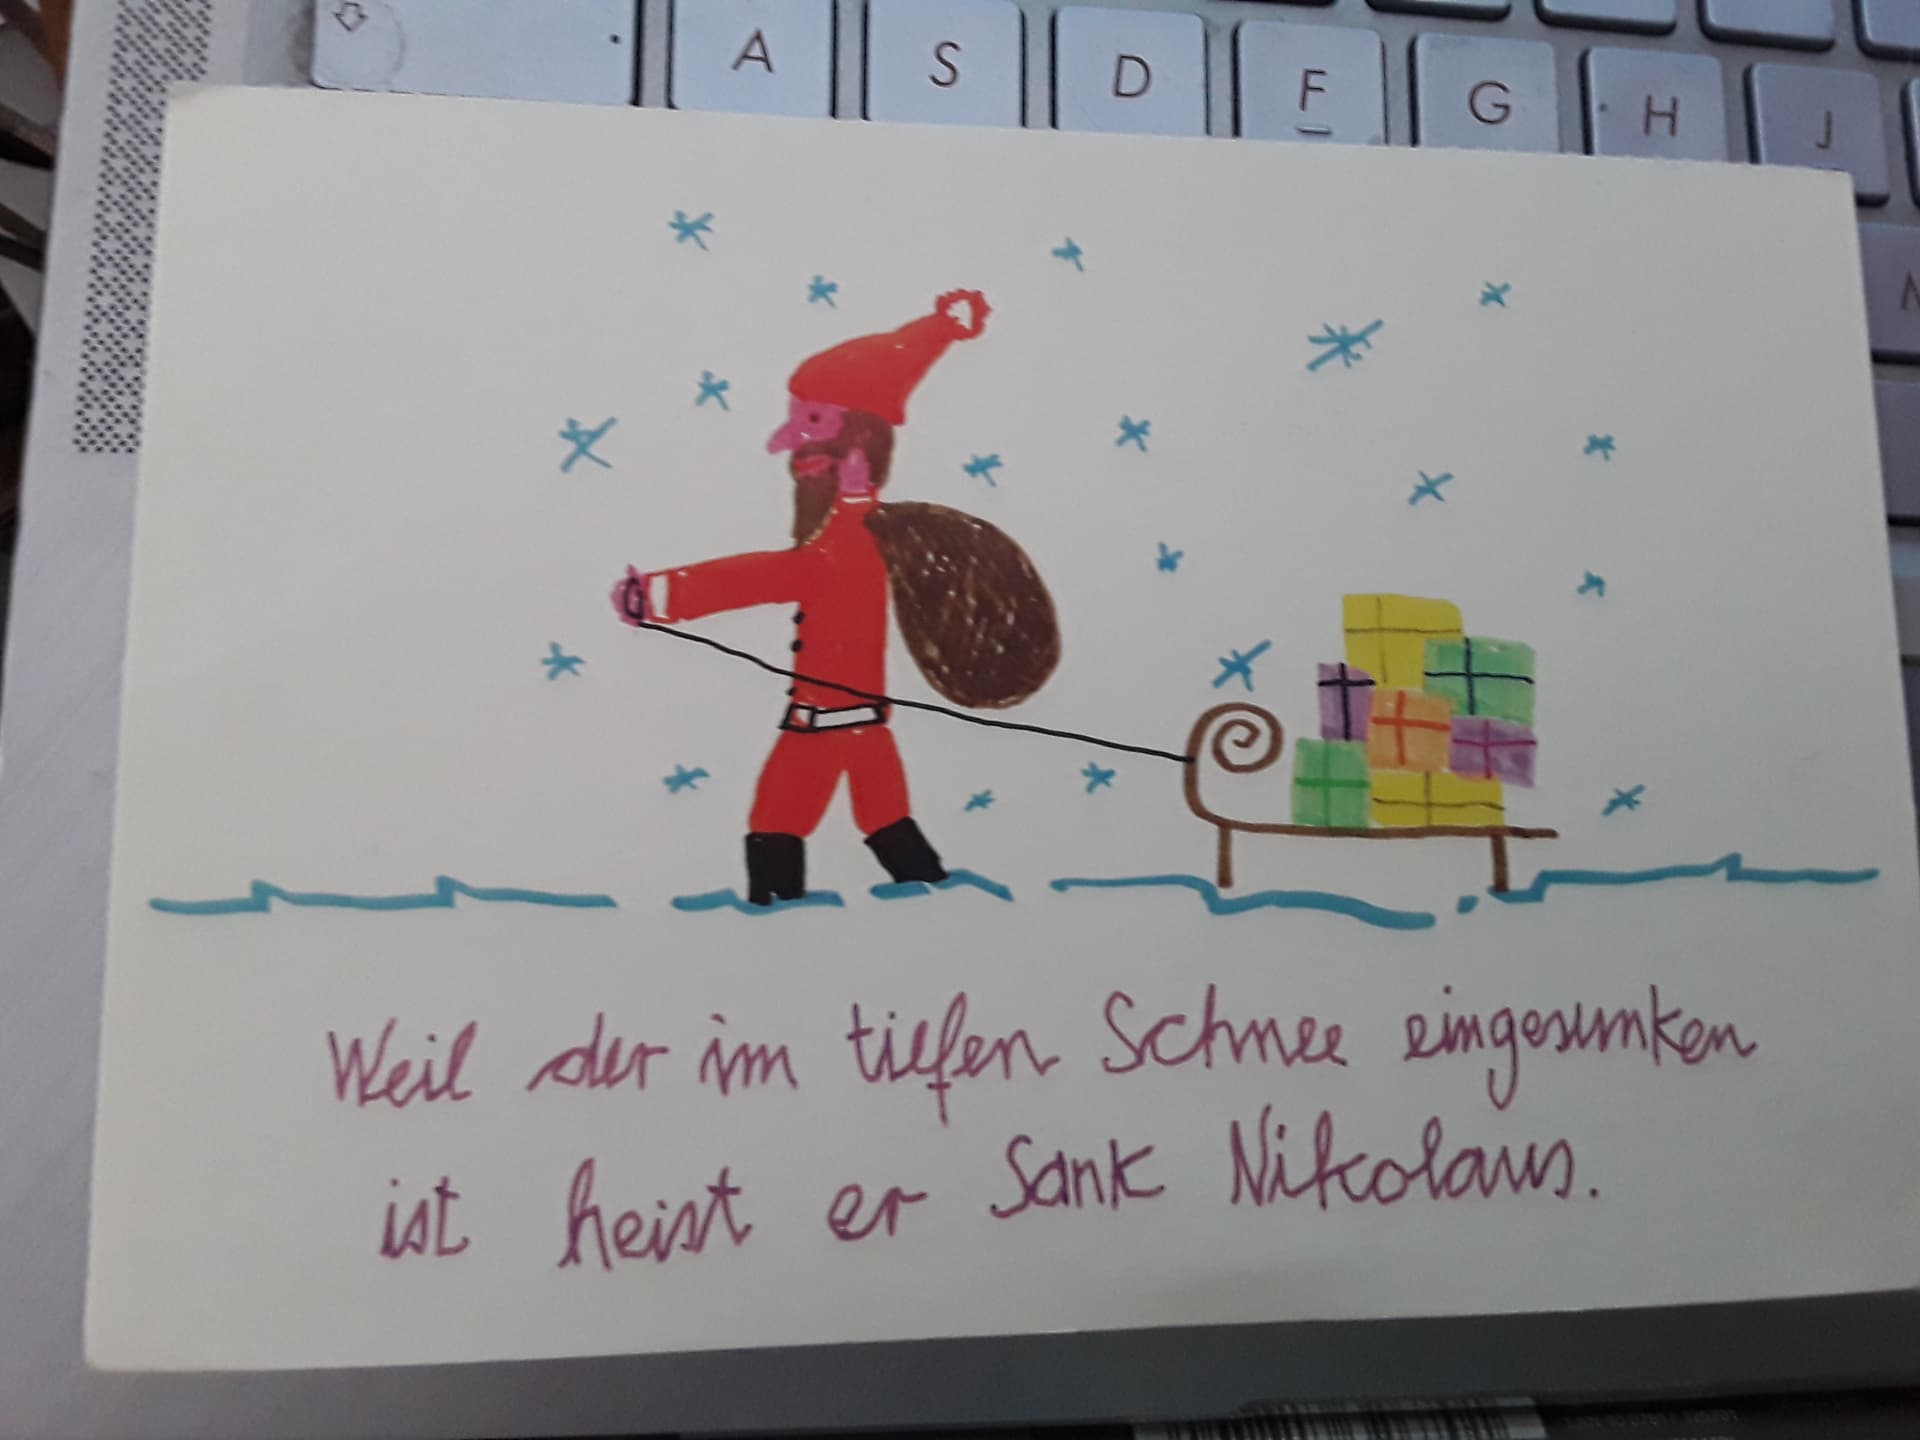 A S D F G H J
Weil der im tiefen Schnee eingesunken
ist heist er Sank Nikolaus.